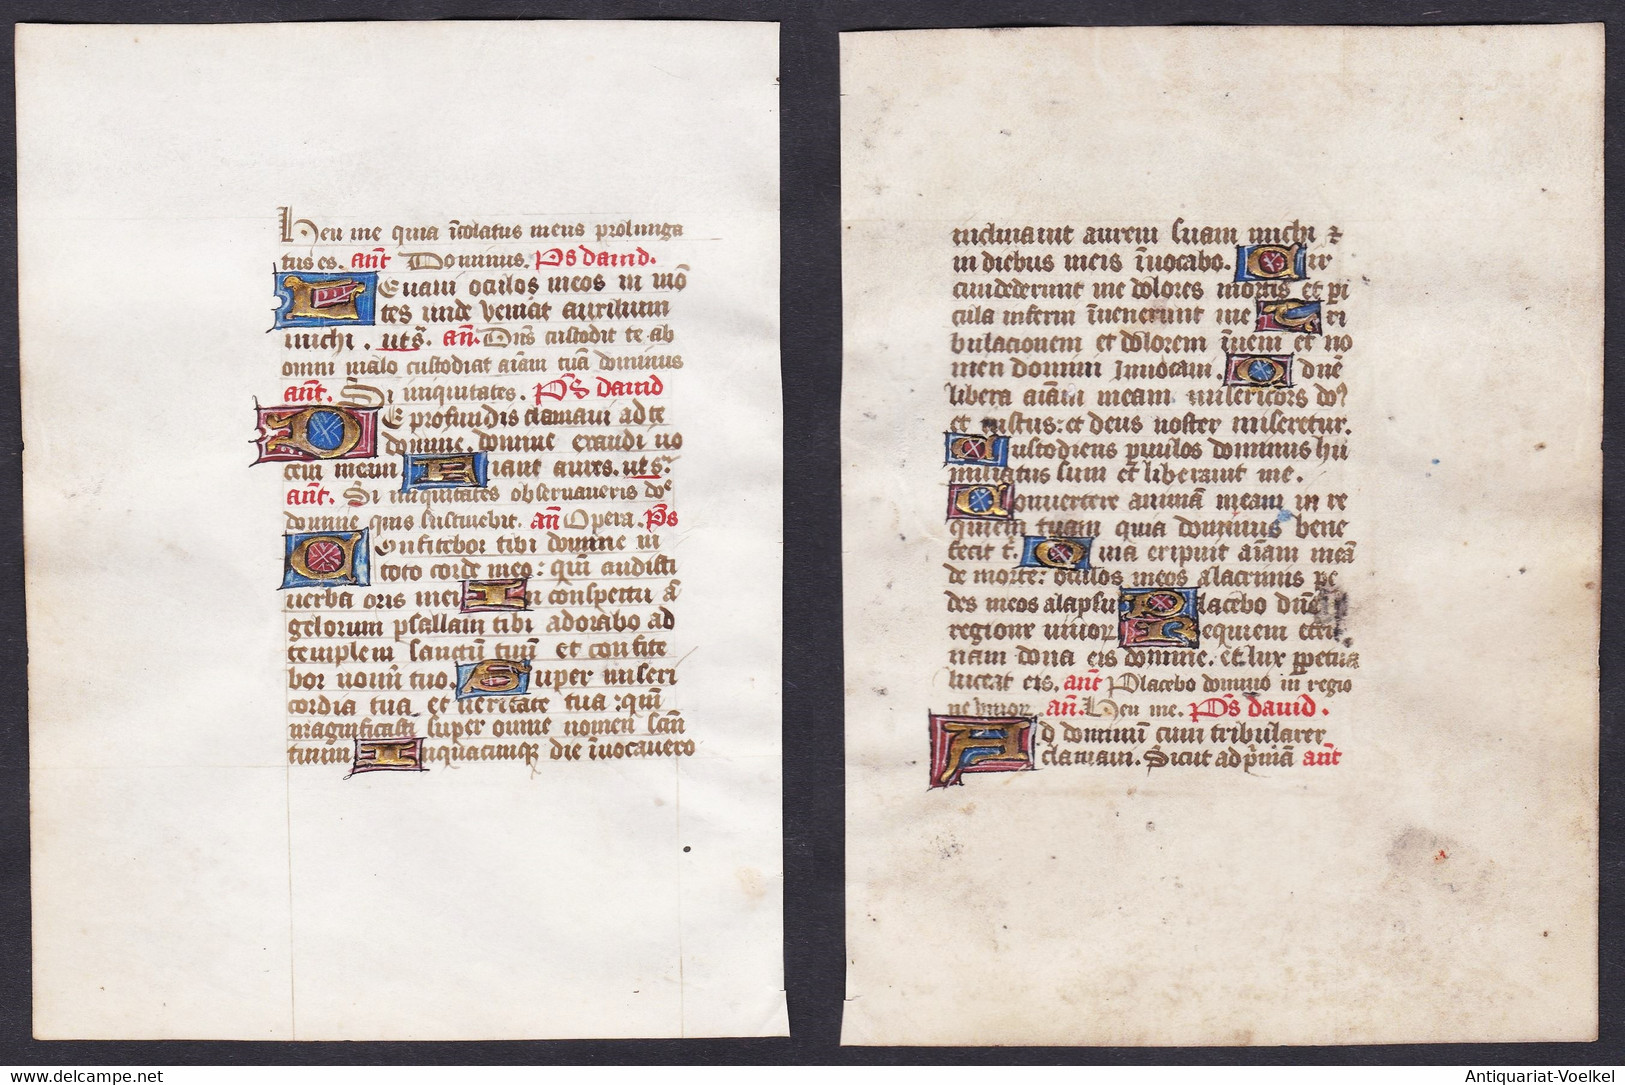 Heu me quia īcolatus meus prolunga
tus es. añt Dominus. Ps dauid.
Leuaui oculos meos in mō
tes unde veniat auxilium
michi. uts̄. añ. Dn̄s custodit te ab
omni malo custodiat aīam tuā dominus
añt. Si iniquitates. Ps dauid
De profundis clamaui ad te
domine. domine exaudi uo
cem meam Fiant aures. uts̄.
añt. Si iniquitates obseruaueris doe
domine quis sustinebit. añ Opera. Ps
Confitebor tibi domine in
toto corde meo: qm̄ audisti
uerba oris mei In conspectu ā
gelorum psallam tibi adorabo ad
templem sanctū tuū et confite
bor noīni tuo. Super miseri
cordia tua et ueritate tua: qm̄
magnificasti super omne nomen sctm̄
tuum In quacumqz die īuocauero
inclinauit aurem suam michi et
in diebus meis īuocabo. Cir
cumdederunt me dolores mortis et pi
cula inferni īuenerunt me Tri
bulacionem et dolorem īueni et no
men domini Innocaui. O dn̄e
libera aīam meam misericors do9
et iustus: et deus noster miseretur.
Custodiens paruulos dominus hu
miliatus sum et liberauit me.
Conuertere animā meam in re
quiem tuam quia dominus bene
fecit t. Quia eripuit aīam meā
de morte: oculos meos a lacrimis pe
des meos a lapsu Placebo dn̄o
regione uiuor Requiem eter
nam dona eis domine. et lux ppetua
luceat eis. añt Placebo domino in regio
ne uiuor. añ. Heu me. Ps dauid.
Ad dominū cum tribularer
clamaui. Sicut ad pīmā añt
Antiquariat-Voelkel
www.delcampe.net